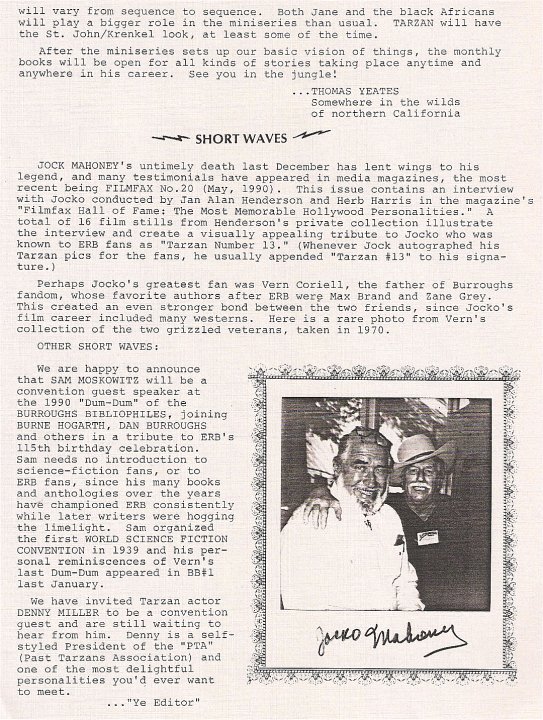 will vary from sequence to sequence.  Both Jane and the black Africans
will play a bigger role in the miniseries than usual.  TARZAN will have
the St. John/Krenkel look, at least some of the time.
After the miniseries sets up our basic vision of things, the monthly
books will be open for all kinds of stories taking place anytime and
anywhere in his career.  See you in the jungle!
...THOMAS YEATES
Somewhere in the wilds
of northern California
SHORT WAVES
JOCK MAHONEY's untimely death last December has lent wings to his
legend, and many testimonials have appeared in media magazines, the most
recent being FILMFAX No.20 (May, 1990).  This issue contains an interview
with Jocko conducted by Jan Alan Henderson and Herb Harris in the magazine's
"Filmfax Hall of Fame: The Most Memorable Hollywood Personalities."  A
total of 16 film stills from Henderson's private collection illustrate
the interview and create a visually appealing tribute to Jocko who was
known to ERB fans as "Tarzan Number 13." (Whenever Jock autographed his
Tarzan pics for the fans, he usually appended "Tarzan #13" to his signa-
ture.)
Perhaps Jocko's greatest fan was Vern Coriell, the father of Burroughs
fandom, whose favorite authors after ERB were Max Brand and Zane Grey.
This created an even stronger bond between the two friends, since Jocko's
film career included many westerns.  Here is a rare photo from Vern's
collection of the two grizzled veterans, taken in 1970.
OTHER SHORT WAVES:
We are happy to announce
that SAM MOSKOWITZ will be a
convention guest speaker at
the 1990 "Dum-Dum" of the
BURROUGHS BIBLIOPHILES, joining
BURNE HOGARTH, DAN BURROUGHS
and others in a tribute to ERB's
115th birthday celebration.
Sam needs no introduction to
science-fiction fans, or to
ERB fans, since his many books
and anthologies over the years
have championed ERB consistently
while later writers were hogging
the limelight.  Sam organized
the first WORLD SCIENCE FICTION
CONVENTION in 1939 and his per-
sonal reminiscences of Vern's
last Dum-Dum appeared in BB#1
last January.
We have invited Tarzan actor
DENNY MILLER to be a convention
guest and are still waiting to
hear from him.  Denny is a self-
styled President of the "PTA"
(Past Tarzans Association) and
one of the most delightful
personalities you'd ever want
to meet.
..."Ye Editor"
Jocko Mahoney